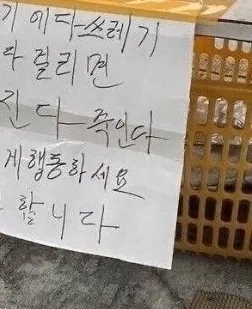 기 에다 쓰레기
다 걸리면
진다 죽인다
게 행동하세요
합니다